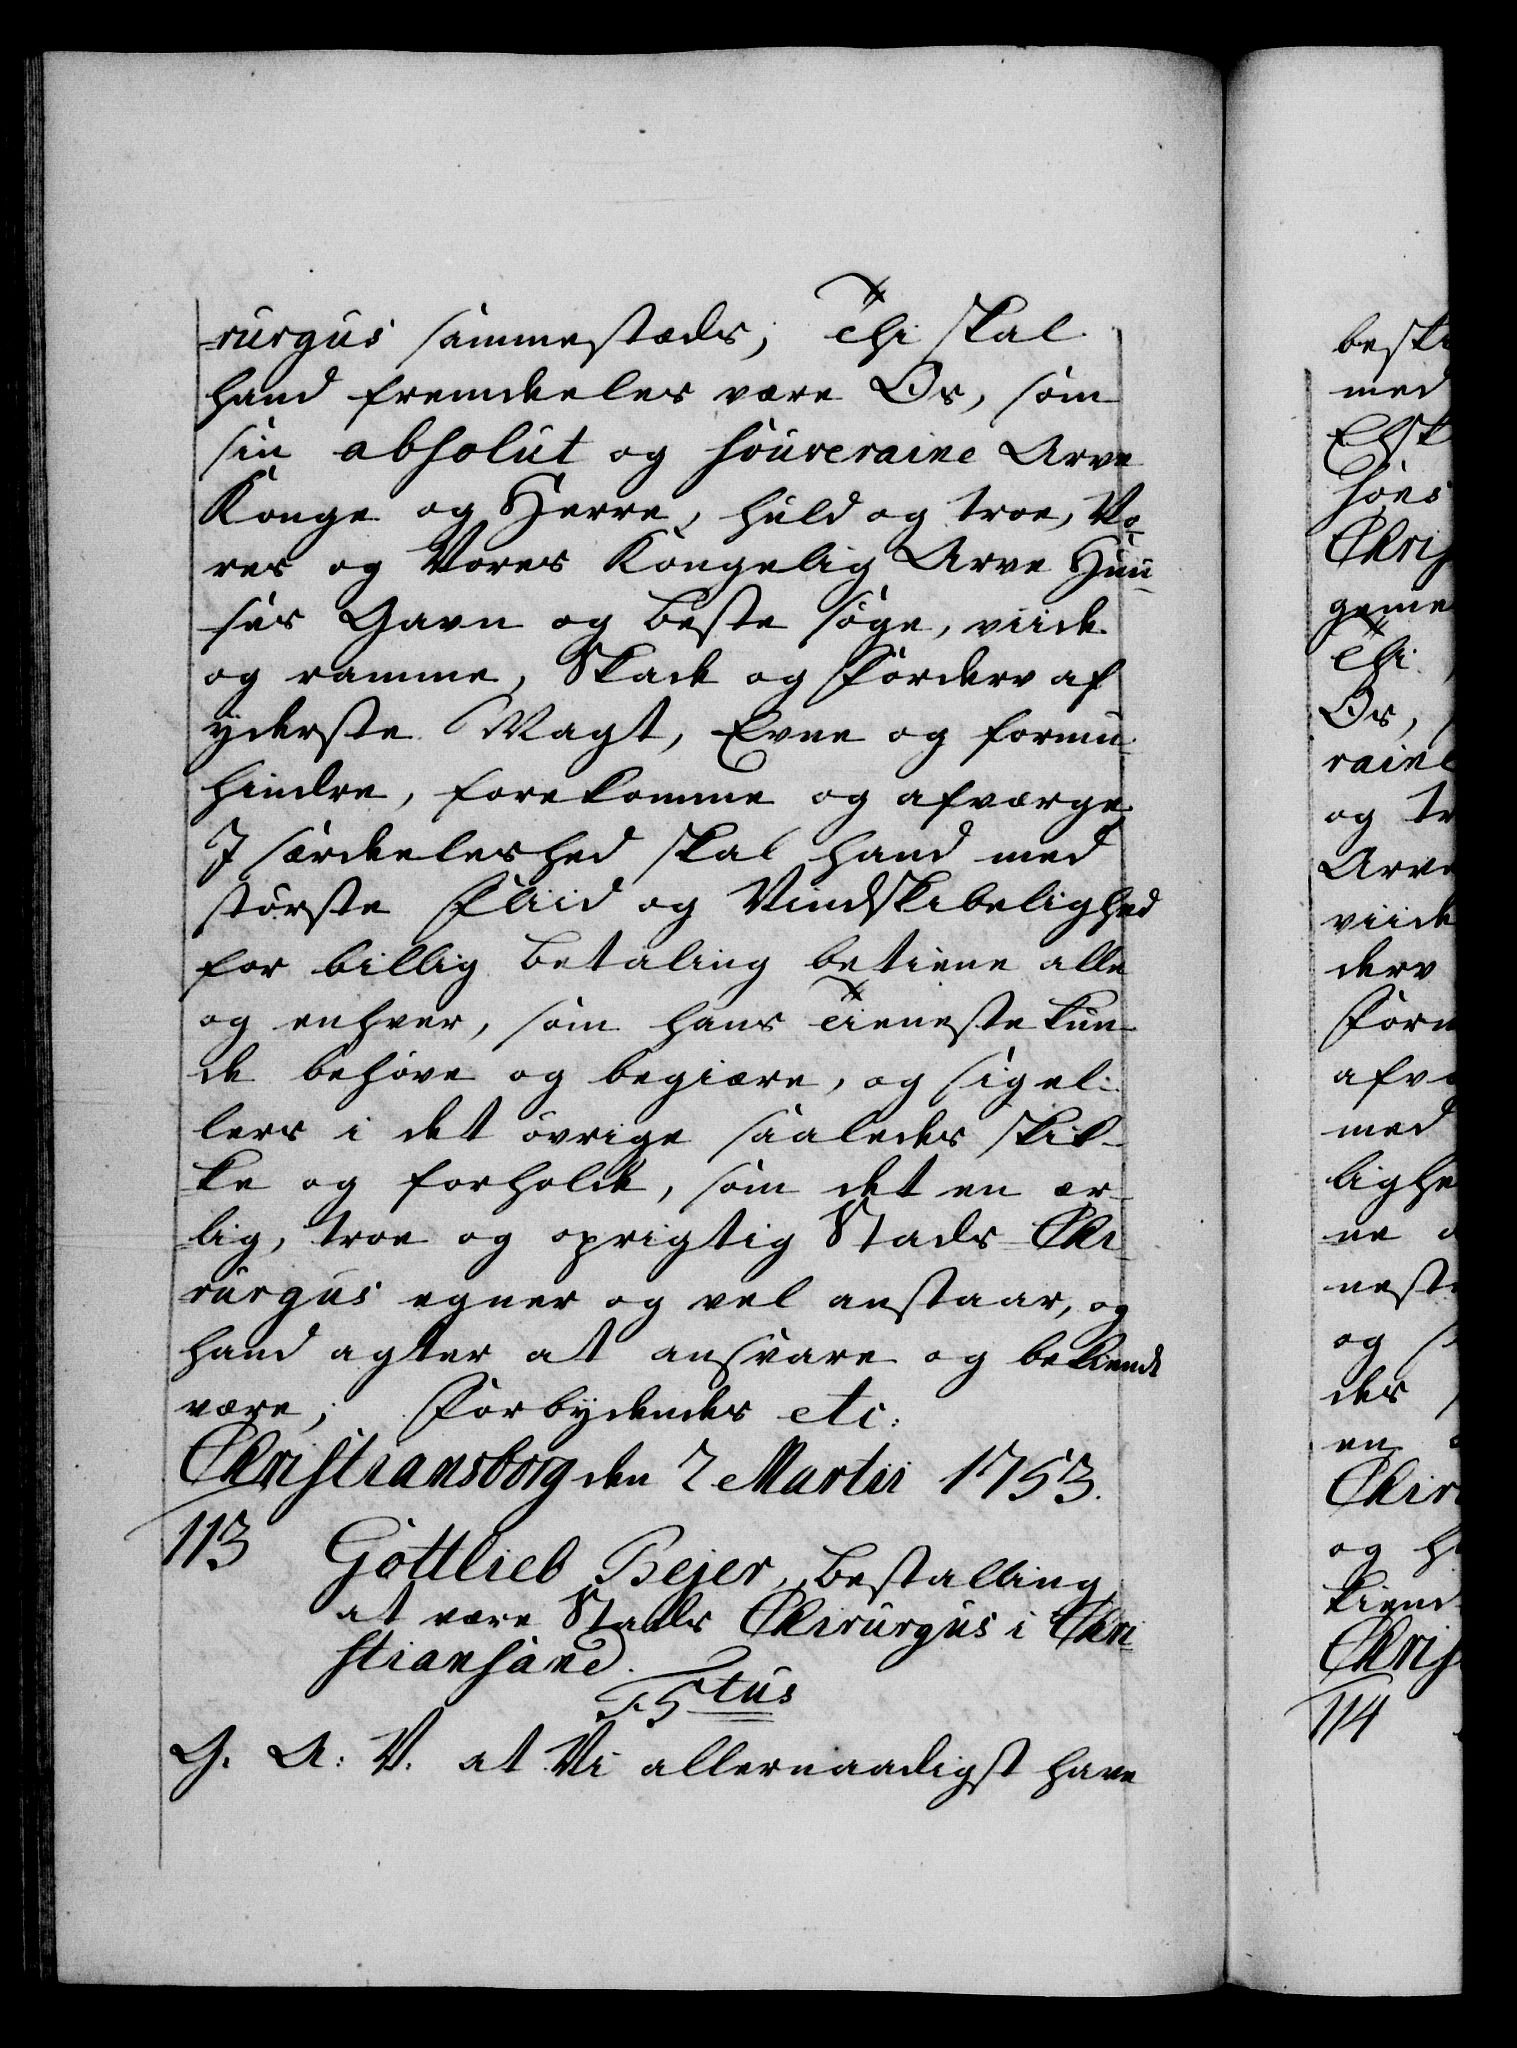 rurgus sammestæds; Thi skal
hand fremdeeles være Os, som
sin absolut og souveraine Arve
Konge og Herre, huld og troe, Vo-
res og Vores Kongelig Arve Huu-
ses Gavn og beste søge, viide
og ramme, Skade og Forderv af
yderste Magt, Evne og formue
hindre, forekomme og afværge
I særdeeleshed skal hand med
største Fliid og Vindskibelighed
for billig betaling betiene alle
og enhver, som hans Tieneste kun-
de behøve og begiære, og sig el-
lers i det øvrige saaledes skik-
ke og forholde, som det en ær-
lig, troe og oprigtig Stads Chi-
rurgus egner og vel anstaar, og
hand agter at ansvare og bekiendt
være; Forbydendes etc:
Christiansborg den 2 Martii 1753.
113 Gottlieb Bejer, bestalling
at være Stads Chirurgus i Chri-
stiansand.
F 5tus
G. A: V. at Vi allernaadigst have
besk
med
Chri
geme
Thi
Os,
raine
og tr
Arve
viide
derv
Form
afv
med
lighe
ne
neste
og
des
en
Chir
og h
kiend
Chris
114